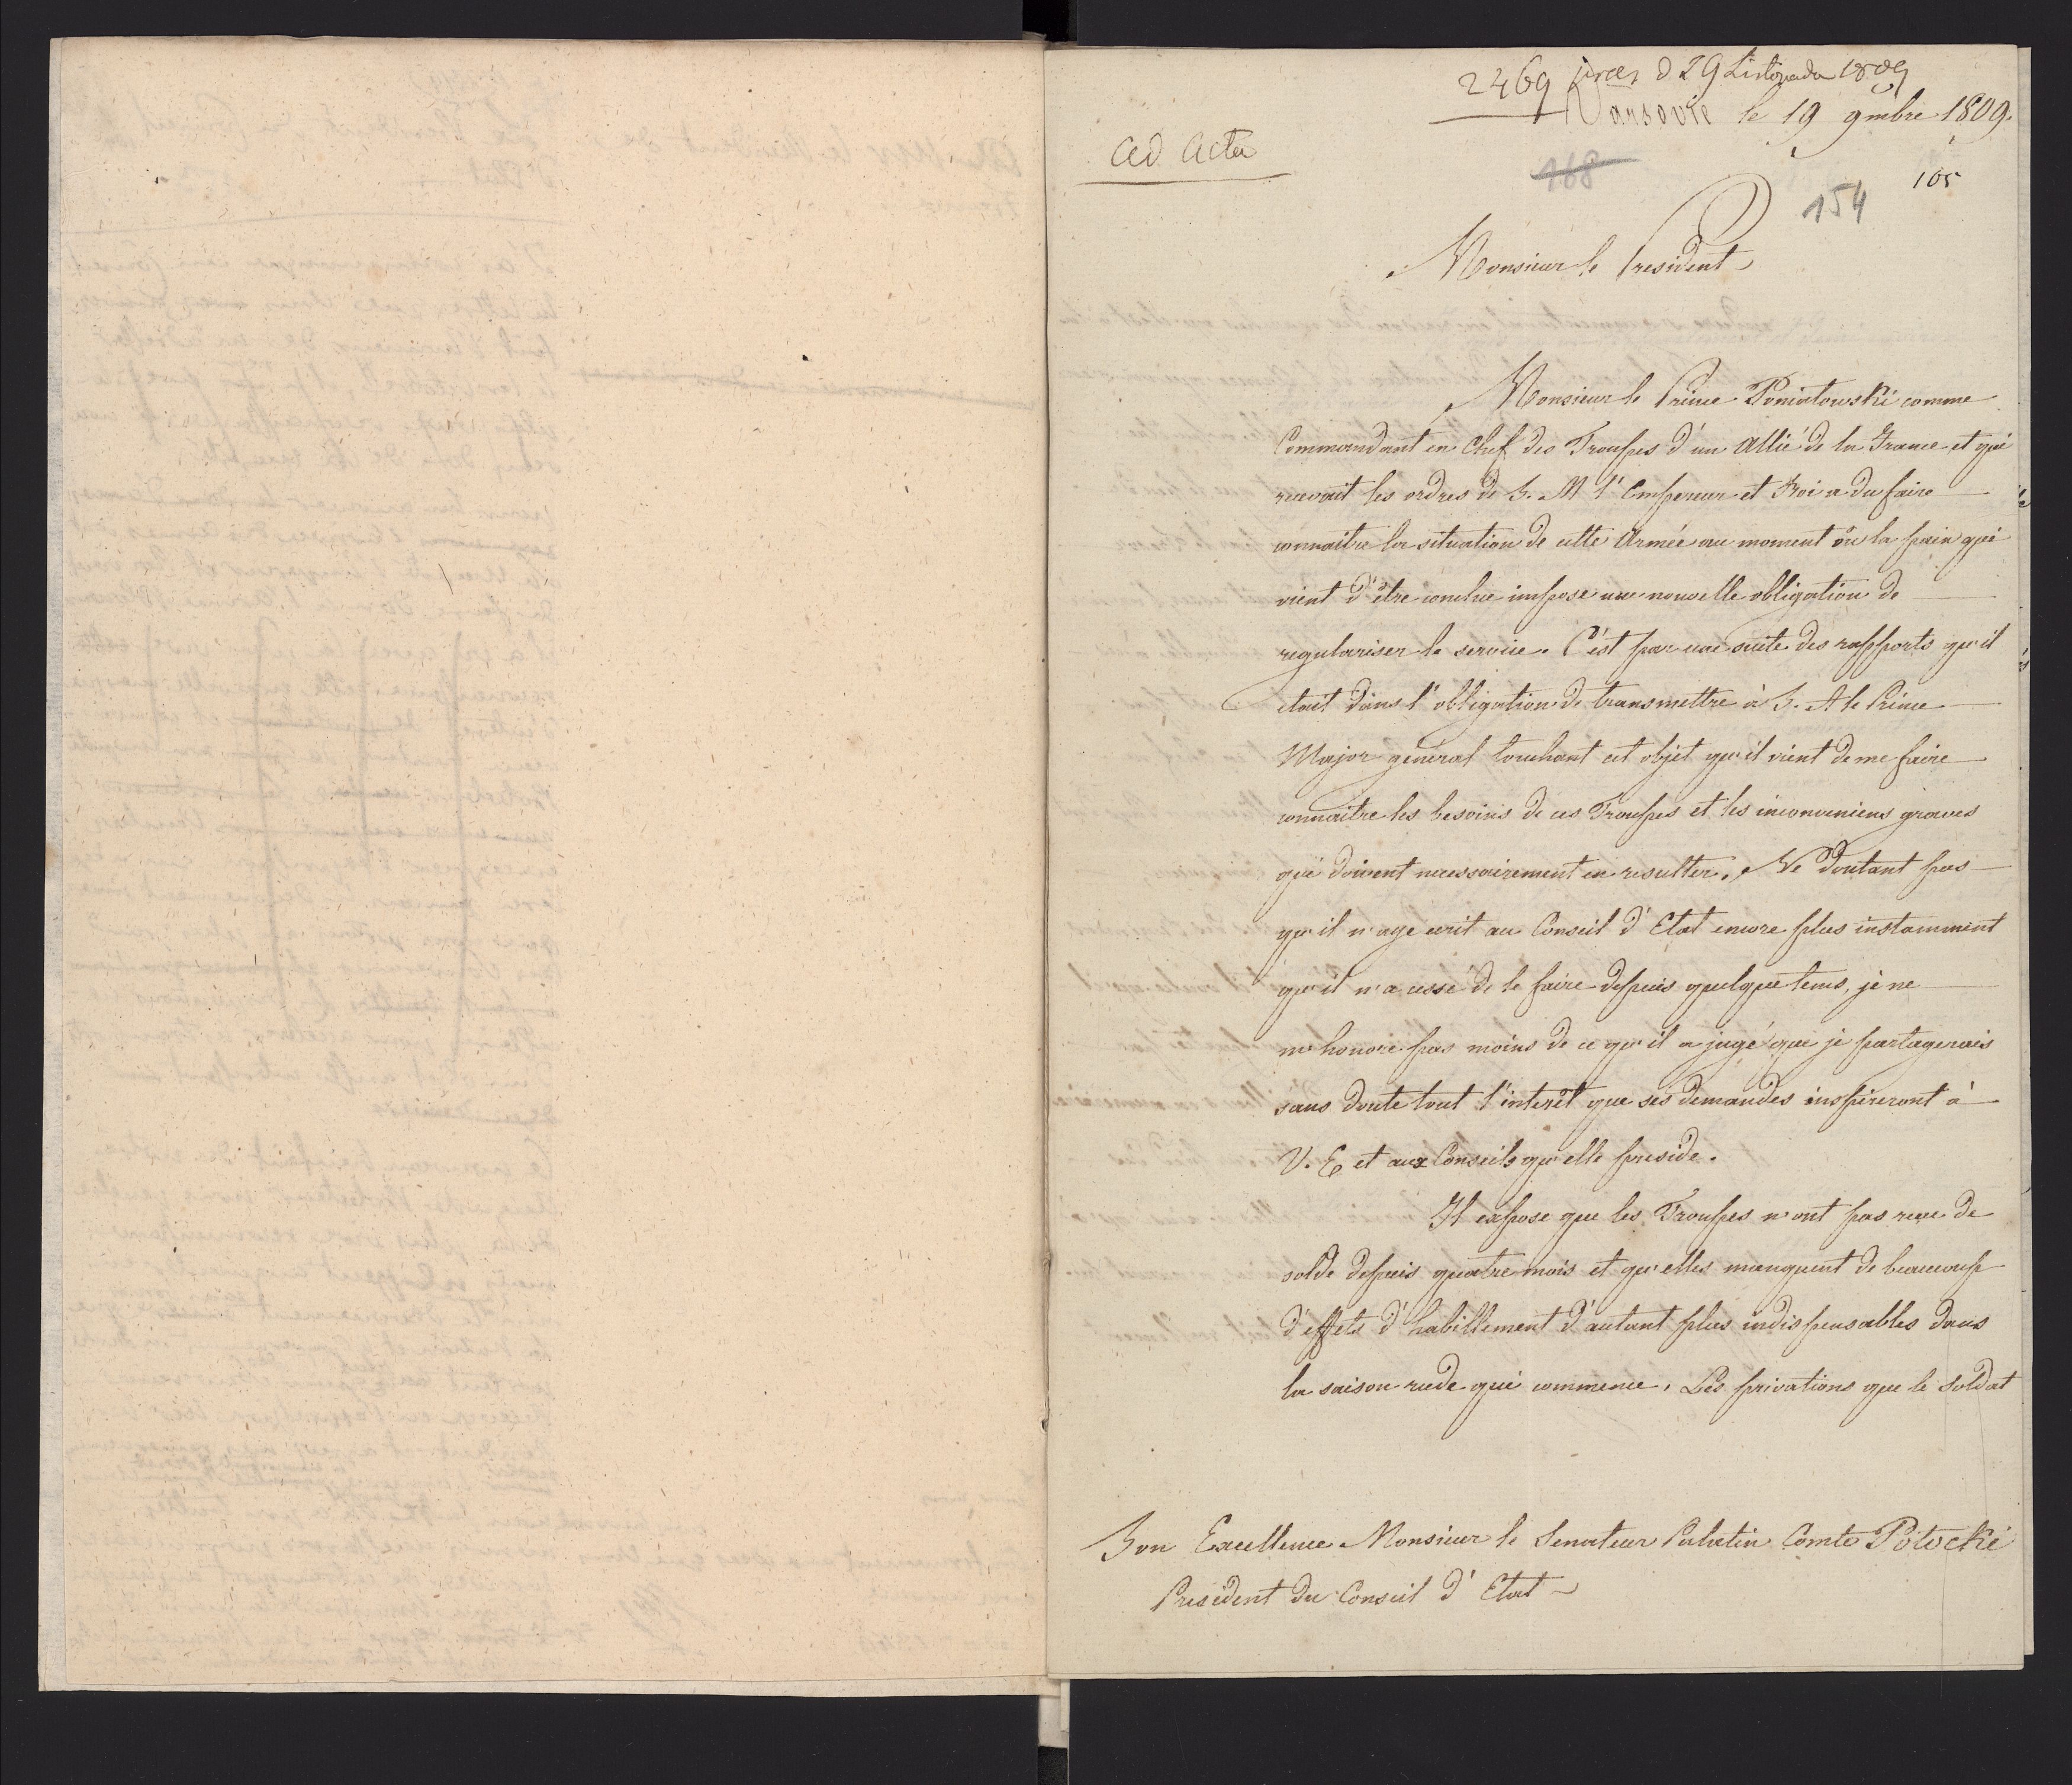 2469 præs d 29 Listopada 1809
Varsovie le 19 9mbre 1809.
ad Acta
168
105
154
Monsieur le President
Monsieur le Prince Poniatowski comme
Commandant en Chef des Troupes d'un Allié de la France et qui
recevait les ordres de S. M l'Empereur et Roi a du faire
connaitre la situation de cette Armée au moment où la paix qui
vient d'être conclue impose une nouvelle obligation de
regulariser le service. C'est par une suite des rapports qu'il
etait dans l'obligation de transmettre à S. A le Prince
Major général touchant cet objet qu'il vient de me faire
connaitre les besoins de ces Troupes et les inconveniens graves
qui doivent necessairement en resulter. Ne doutant pas
qu'il n'aye ecrit au Conseil d'Etat encore plus instamment
qu'il n'a cessé de le faire depuis quelque tems, je ne
m'honore pas moins de ce qu'il a jugé que je partagerais
sans doute tout l'interêt que ses demandes inspireront à
V. E et aux Conseils qu'elle preside.
Il expose que les Troupes n'ont pas reçu de
solde depuis quatre mois et qu'elles manquent de beaucoup
d'effets d'habillement d'autant plus indispensables dans
la saison rude qui commence. Les privations que le soldat
Son Excellence Monsieur le Senateur Palatin Comte Potocki
President du Conseil d'Etat